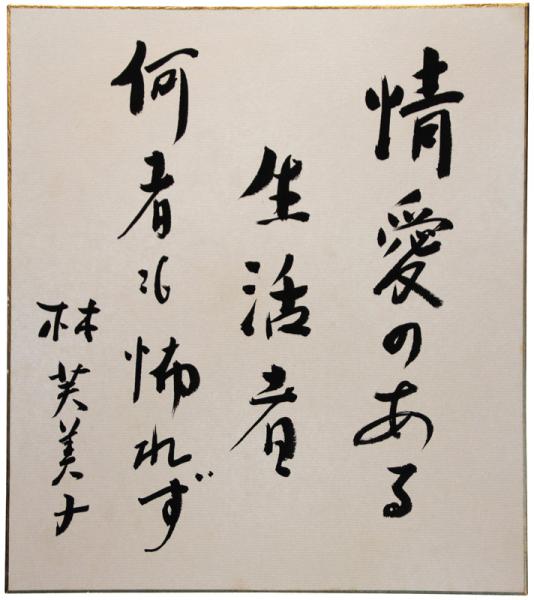 情愛のある
生活者
何者も怖れず
林芙美子